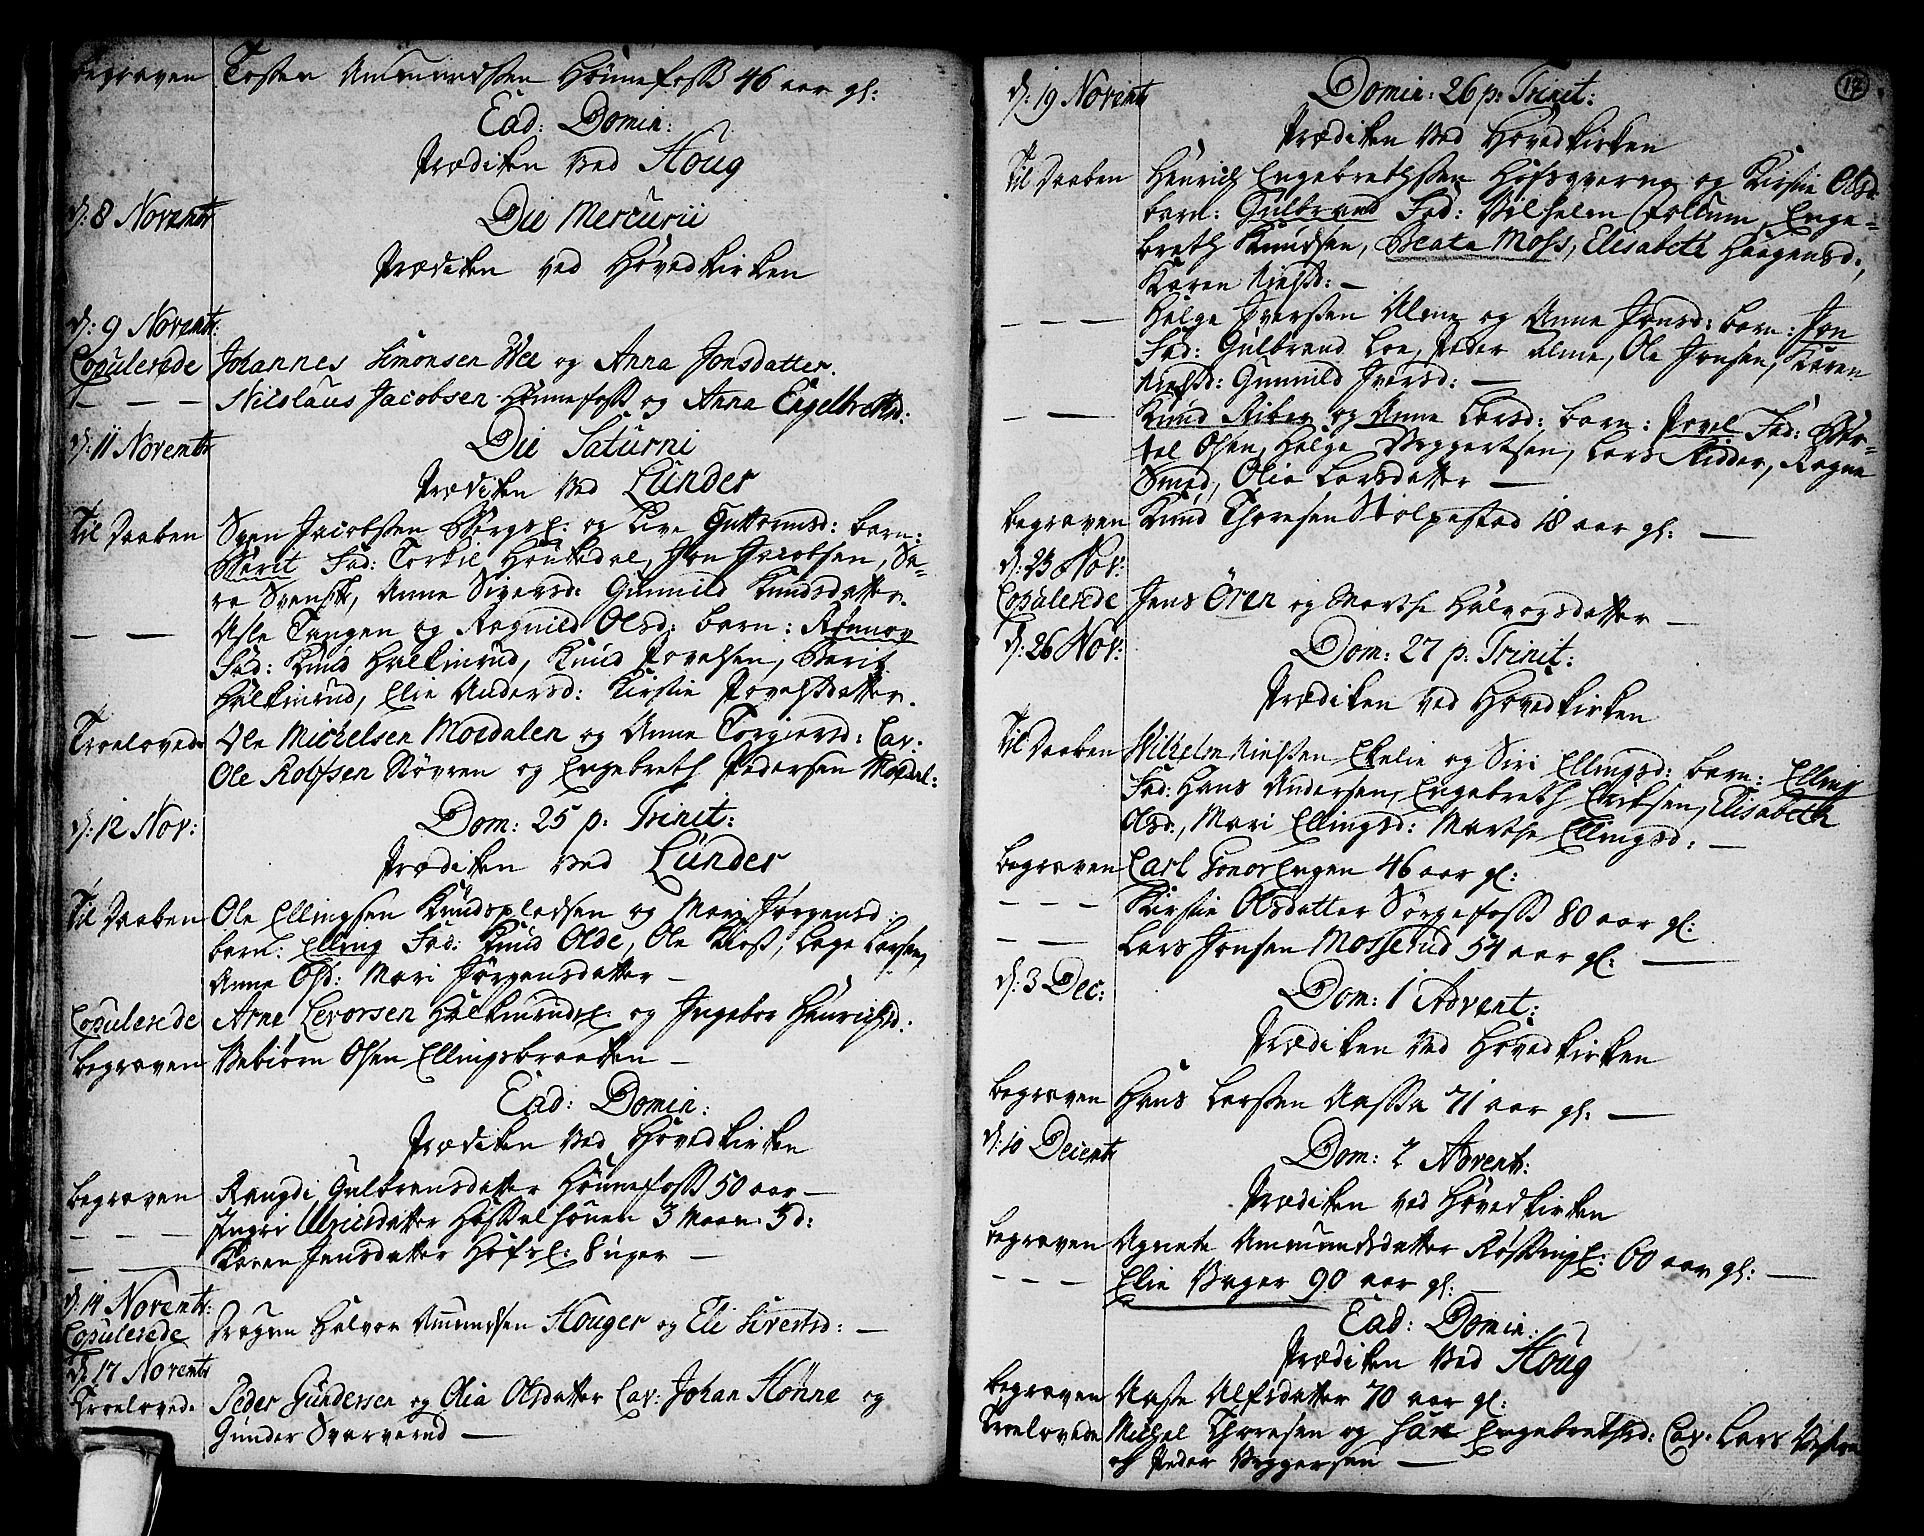 Begraven Tosten Amundssen Hønnefoss 46 aar gl:
Ead: Domin:
Prædiken ved Houg
d: 8 Novembr Die Mercurii
Prædiken ved Hovedkirken
d: 9 Novembr:
Copulerede Johannes Simonsen Wee og Anna Jonsdatter.
— — — Nicolaus Jacobsen Hønnefoss og Anna Engelbretsd:
d: 11 Novembr Die Saturni
Prædiken ved Lunder
Til Daaben Sven Jacobssen og Live Guttormsd: barn:
Berit Fad: Torkil Jon Jacobsen, Sa-
ra Svensdt, Anne Siversd: Gunnild Knudsdatter.
— — Asle Tangen og Ragnild Olsd: barn: Rønnov
Fad: Knud Halkinrud, Knud Povelsen, Berit
Halkinrud, Elie Andersd: Kirstie Povelsdatter.
Troelovede Ole Michelsen Moedalen og Anne Torgiersd: Cav:
Ole Rolfsen Støvren og Engebreth Pedersen Moedal:
d: 12 Nov: Dom: 25 p: Trinit:
Prædiken ved Lunder
Til Daaben Ole Ellingsen Knudspladsen og Mari Jørgensd:
barn: Elling Fad: Knud Olde, Ole Lage Larsen,
Anne Olsd: Mari Jørgensdatter —
Copulerede Arne Levorsen Halkinrudel: og Ingebor Henrichsd:
Begraven Vebiørn Olsen Ellingsbraaten —
Ead: Domin:
Prædiken ved Hovedkirken
Begraven Rangdi Gulbransdatter Hønnefoss 50 aar —
— — — Ingri Ulricsdatter 3 Maan: 5 d:
— — Karen Jensdatter Hofsl: 8 uger —
d: 14 Novembr:
Copulerede Halvor Amundsen Houger og Eli Sivertsd: —
d: 17 Novembr
Troelovede Peder Gundersen og Olia Olsdatter Cav: Johan Hønne og
Gunder Svarverud —
17
d: 19 Novembr Domin: 26 p: Trinit:
Prædiken ved Hovedkirken
Til Daaben Henrich Engebrethsen og Kirstie Olsd:
barn: Gulbrand Fad: Vilhelm Follum, Enge-
breth Knudsen, Beata Moss, Elisabeth Haagensd:,
Karen Nielsd: —
— — — Helge Iversen Alme og Anne Jonsd: barn: Jon
Fad: Gulbrand Loe, Peder Alme, Ole Jonsen, Karen
Nielsd: Gunnild Iversd: —
— — Knud Riber og Anne Larsd: barn: Povel Fad: Bær-
tel Olsen, Helge Lars Ridder, Ragne
Smed, Olia Larsdatter —
Begraven Knud Thoresen Stolpestad 18 aar gl: —
d: 23 Nov:
Copulerede Jens Ören og Marthe Halvorsdatter —
d: 26 Nov: Dom: 27 p: Trinit:
Prædiken ved Hovedkirken
Til Daaben Wilhelm Nielsen Ekelie og Siri Ellingsd: barn: Elling
Fad: Hans Andersen, Engebreth Eriksen, Elisabeth
Olsd:, Mari Ellingsd: Marthe Ellingsd: —
Begraven Carl 46 aar gl:
— — — Kirstie Olsdatter Sørgefoss 80 aar gl:
— — Lars Jonsen Mosserud 54 aar gl: —
d: 3 Dec: Dom: 1 Advent:
Prædiken ved Hovedkirken
Begraven Hans Larssen Aassa 71 aar gl: —
d: 10 Decembr Dom: 2 Advent:
Prædiken ved Hovedkirken
Begraven Agnete Amundsdatter 60 aar gl: —
— — — Elie Bager 90 aar gl:
Ead: Domin:
Prædiken ved Houg
Begraven Aase Alfsdatter 70 aar gl:
Troelovede Michel Thoresen og Engebrethsd: Cav: Lars
og Peder —